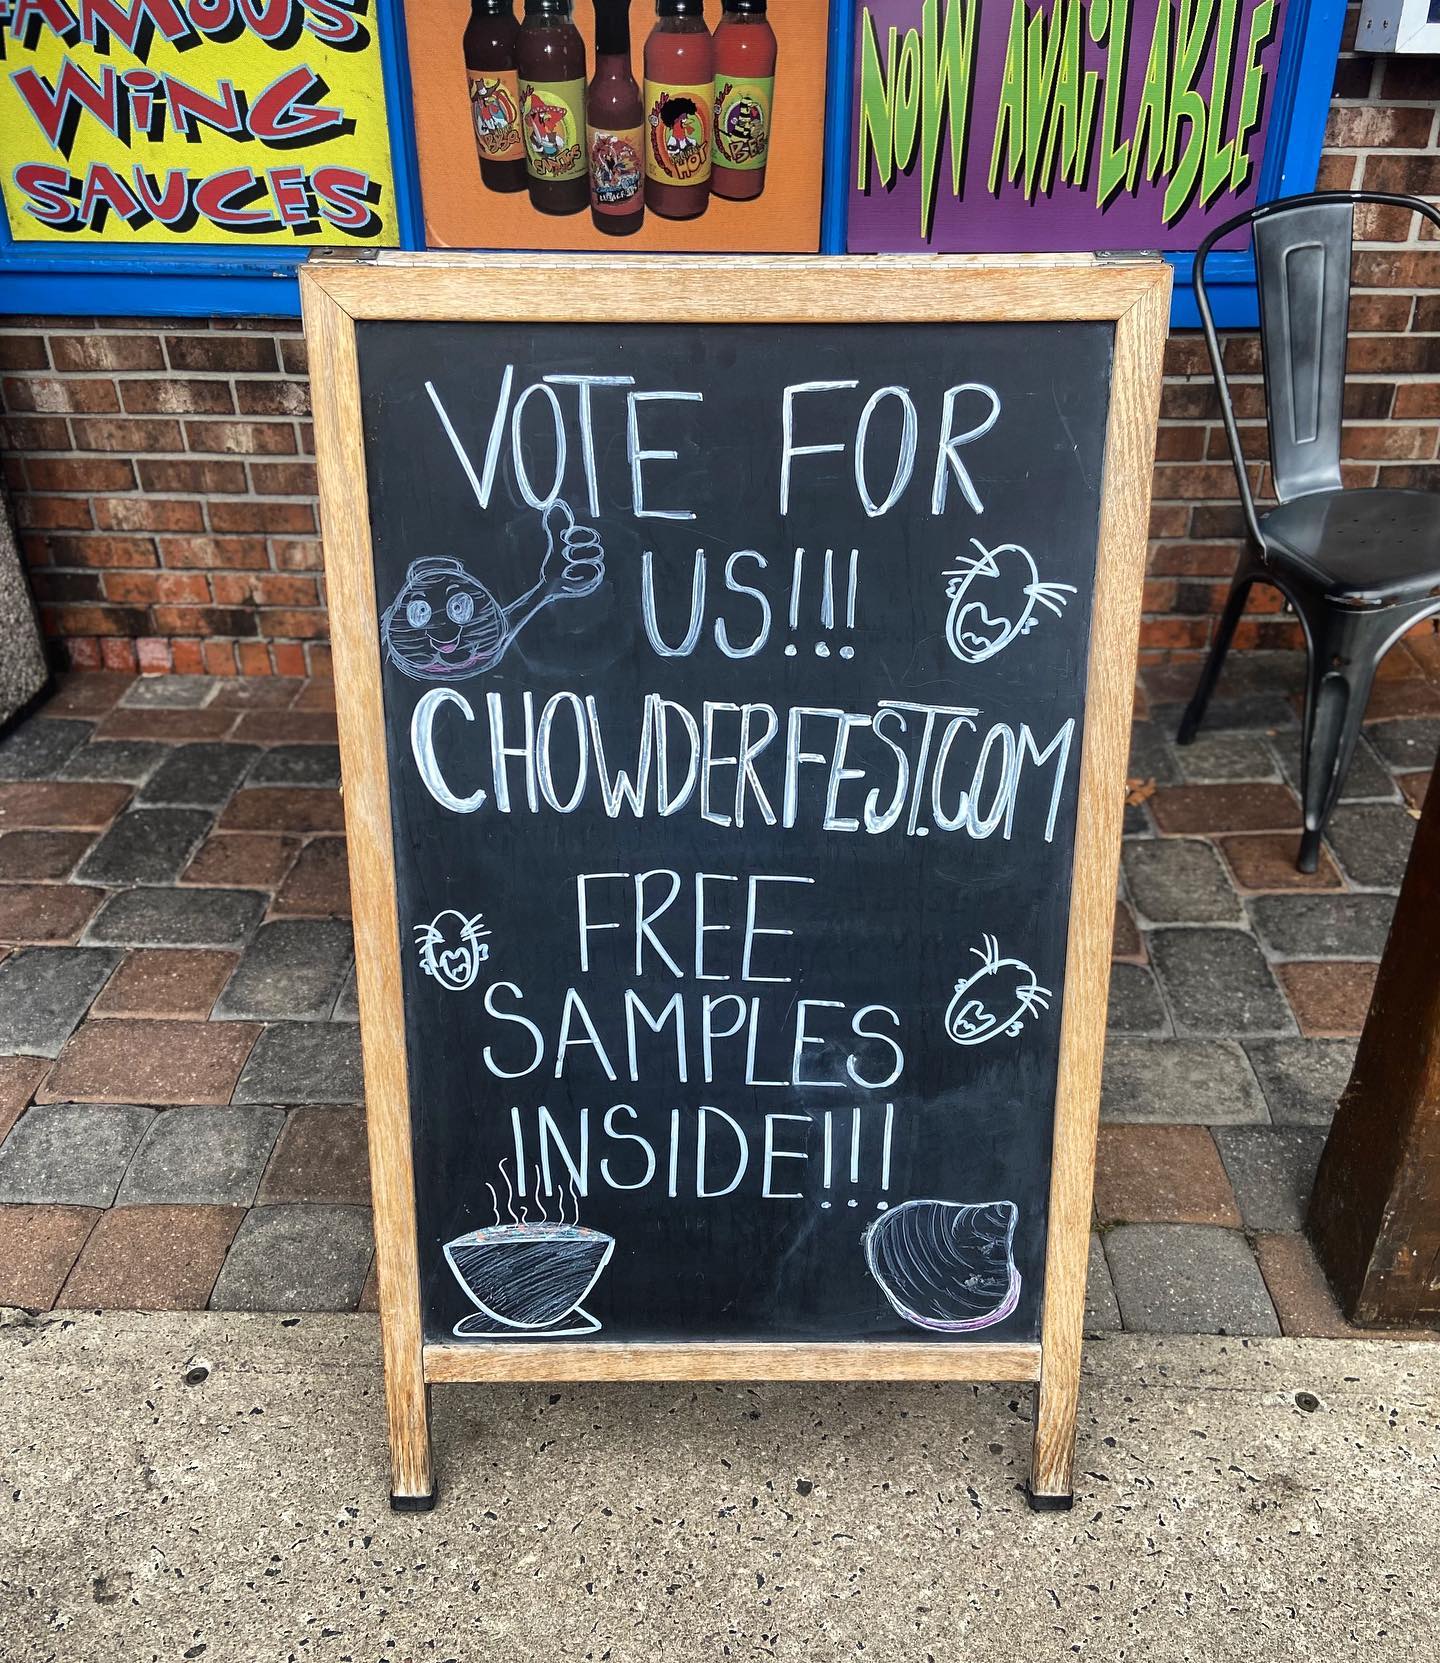 FAMOUS
WING
SAUCES
HOT
BEE
NOW AVAILABLE
VOTE FOR
US!!!
CHOWDERFEST.COM
FREE
SAMPLES
INSIDE!!!